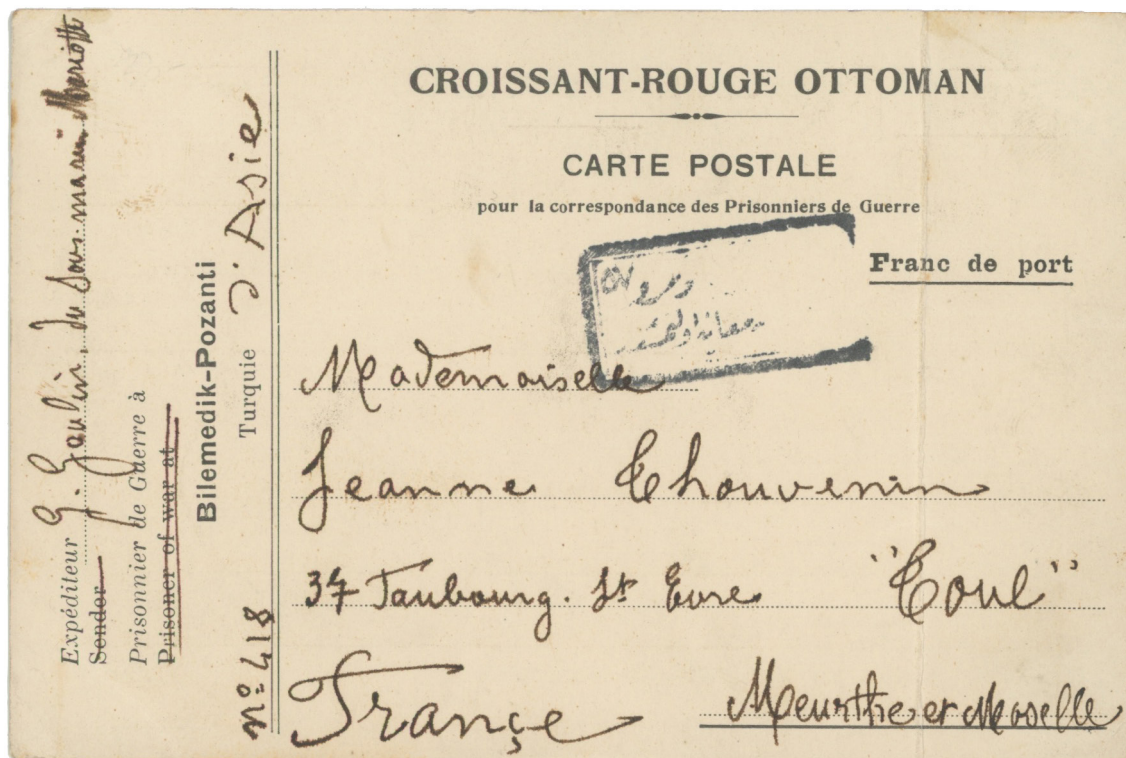 CROISSANT-ROUGE OTTOMAN
CARTE POSTALE
pour la correspondance des Prisonniers de Guerre
Franc de port
Mademoiselle
Jeanne Thouvenin
37 Faubourg. St Evre "Toul"
Françe
Meurthe et Moselle
Expéditeur G. Gaulin, du Sous-marin Mariotte
Sender
Prisonnier de Guerre à
Prisoner of war at
Bilemedik-Pozanti
Turquie d'Asie
nº 418